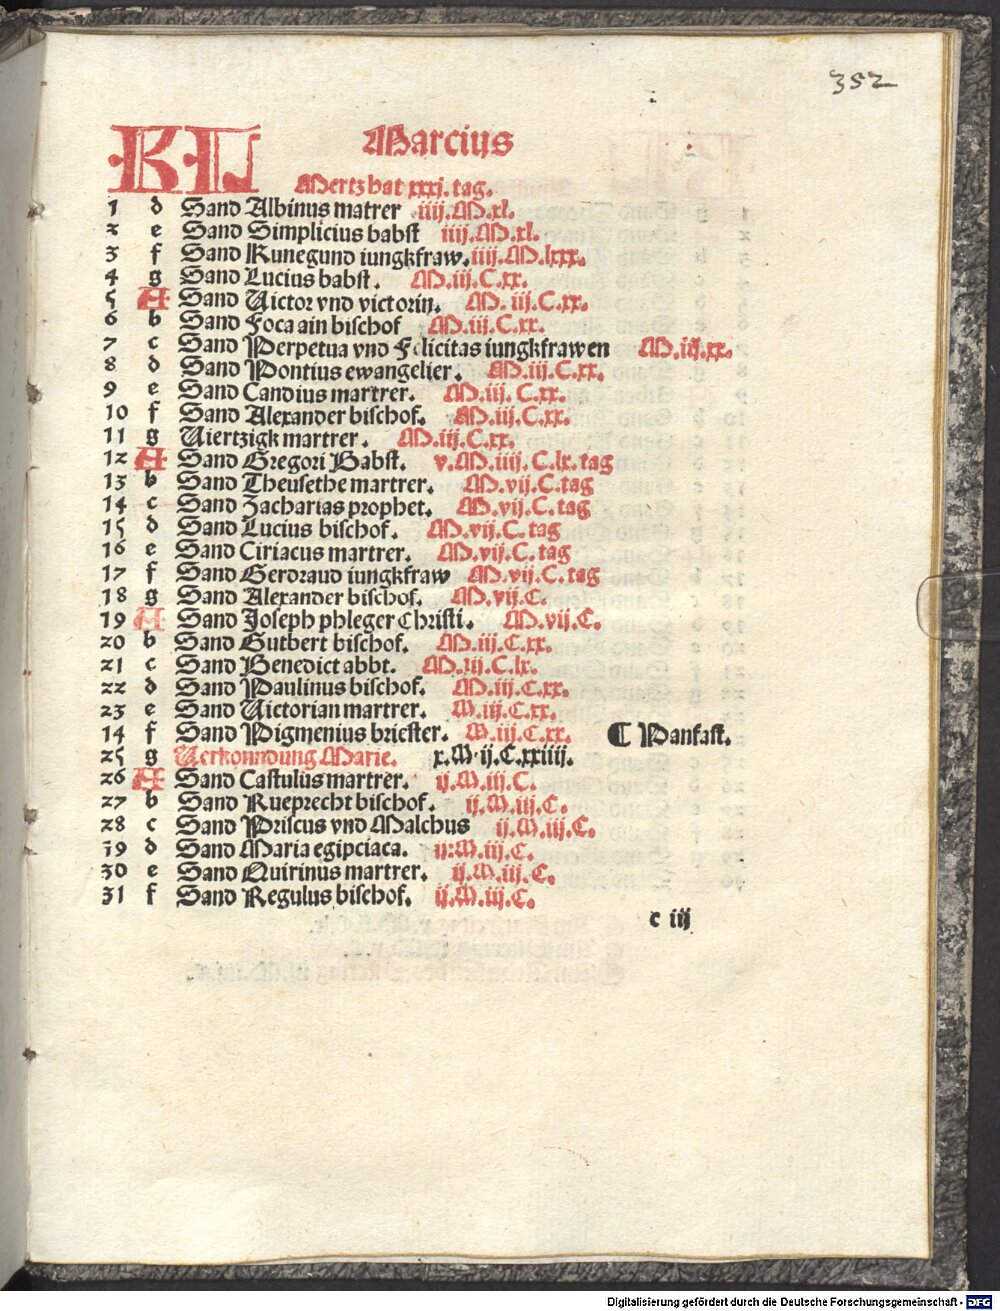 352
KL Marcius
Mertz hat xxxi. tag.
1 d Sand Albinus matrer iiij.M.xl.
2 e Sand Simplicius babst iiij.M.xl.
3 f Sand Kunegund iungkfraw. iiij.M.lxxx.
4 g Sand Lucius babst. M.iij.C.xx.
5 A Sand Victor vnd victorin. M.iij.C.xx.
6 b Sand Foca ain bischof M.iij.C.xx.
7 c Sand Perpetua vnd Felicitas iungkfrawen M.iij.xx.
8 d Sand Pontius ewangelier. M.iij.C.xx.
9 e Sand Candius martrer. M.iij.C.xx.
10 f Sand Alexander bischof. M.iij.C.xx.
11 g Viertzigk martrer. M.iij.C.xx.
12 A Sand Gregori Babst. v.M.iiij.C.lx.tag
13 b Sand Theusethe martrer. M.vij.C.tag
14 c Sand Zacharias prophet. M.vij.C.tag
15 d Sand Lucius bischof. M.vij.C.tag
16 e Sand Ciriacus martrer. M.vij.C.tag
17 f Sand Gerdraud iungkfraw M.vij.C.tag
18 g Sand Alexander bischof. M.vij.C.
19 A Sand Joseph phleger Christi. M.vij.C.
20 b Sand Gutbert bischof. M.iij.C.xx.
21 c Sand Benedict abbt. M.iij.C.lx.
22 d Sand Paulinus bischof. M.iij.C.xx.
23 e Sand Victorian martrer. M.iij.C.xx.
14 f Sand Pigmenius briester. M.iij.C.xx. ¶ Panfast.
25 g Verkonndung Marie. x.M.ij.C.xxiiij.
26 A Sand Castulus martrer. ij.M.iij.C.
27 b Sand Rueprecht bischof. ij.M.iij.C.
28 c Sand Priscus vnd Malchus ij.M.iij.C.
19 d Sand Maria egipciaca. ij.M.iij.C.
30 e Sand Quirinus martrer. ij.M.iij.C.
31 f Sand Regulus bischof. ij.M.iij.C.
c iij
Digitalisierung gefördert durch die Deutsche Forschungsgemeinschaft - DFG